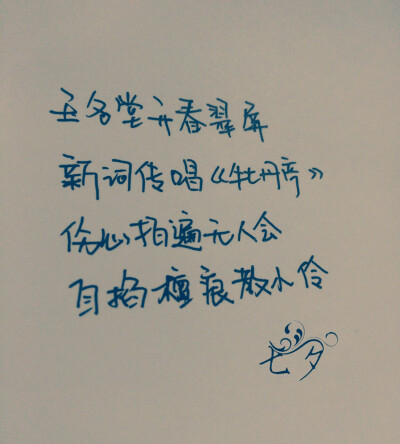 玉名堂开春翠屏
新词传唱《牡丹亭》
伤心拍遍无人会
自掐檀痕教小伶
七夕